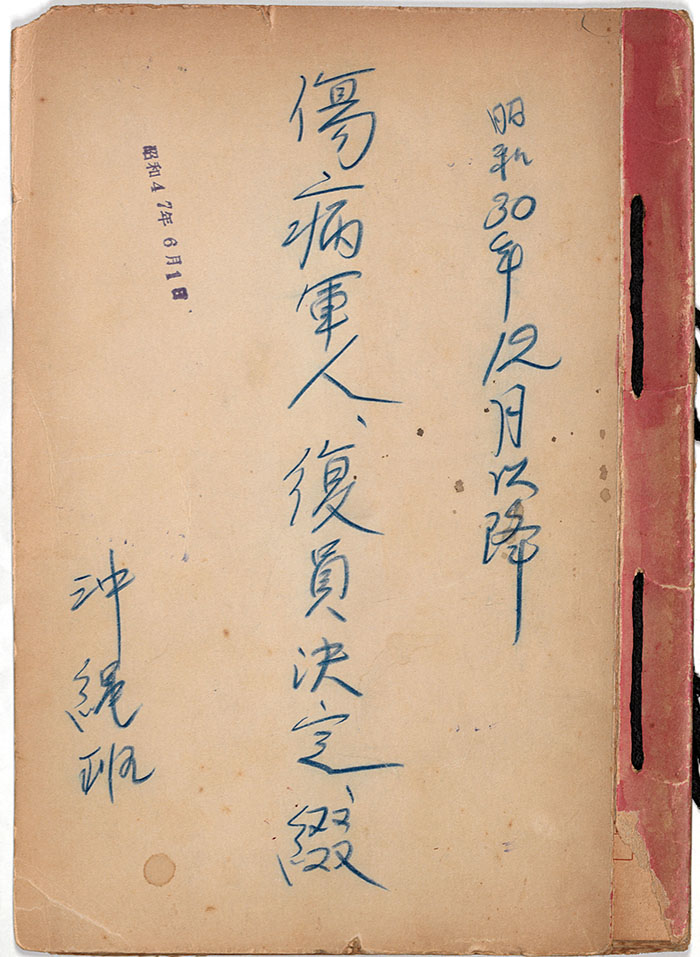 昭和30年12月以降
傷病軍人、復員決定、綴
昭和47年6月1日
沖縄班